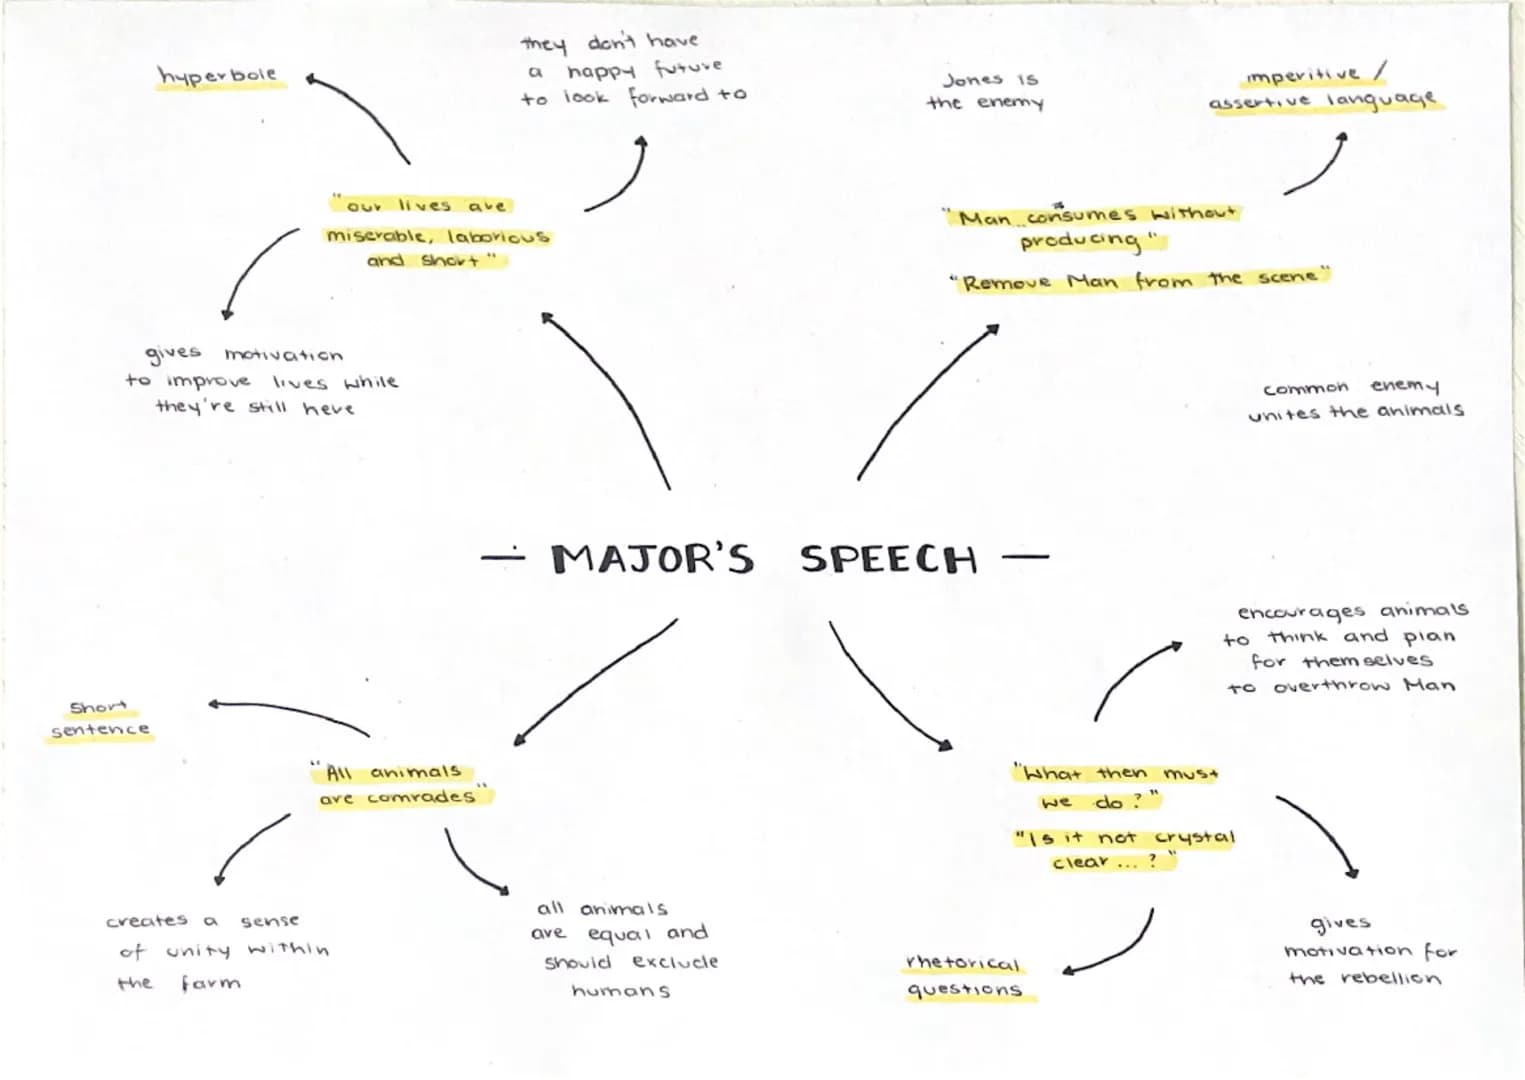 hyperbole
they don't have
a happy future
to look forward to
"our lives are
miserable, laborious
and short"
gives motivation
to improve lives while
they're still here
Jones is
the enemy
imperitive /
assertive language
"Man consumes without
producing"
"Remove Man from the scene"
common enemy
unites the animals
— MAJOR'S SPEECH —
short
sentence
"All animals
are comrades"
creates a sense
of unity within
the farm
all animals
are equal and
should exclude
humans
encourages animals
to think and plan
for themselves
to overthrow Man
"What then must
we do?"
"Is it not crystal
clear ... ?"
rhetorical
questions
gives
motivation for
the rebellion